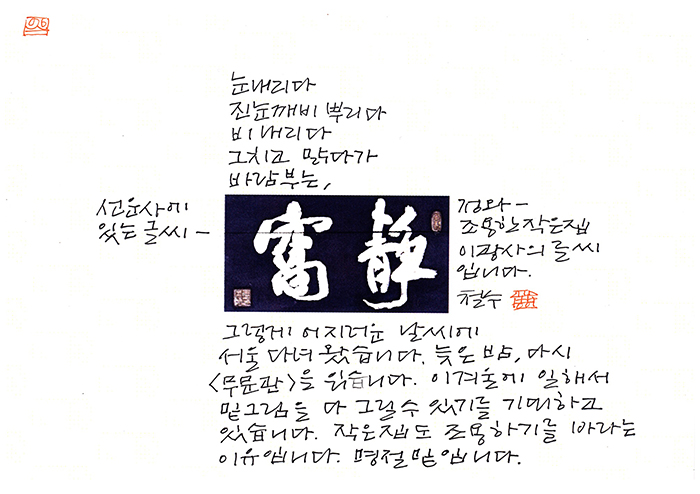 눈내리다
진눈깨비 뿌리다
비 내리다
그치고 맑다가
바람부는,
선운사에
있는 글씨 –
靜窩
정와 –
조용한 작은집
이광사의 글씨
입니다.
철수
그렇게 어지러운 날씨에
서울 다녀 왔습니다. 늦은 밤, 다시
<무문관>을 읽습니다. 이겨울에 일해서
밑그림을 다 그릴수 있기를 기대하고
있습니다. 작은집도 조용하기를 바라는
이유입니다. 명절 밑입니다.